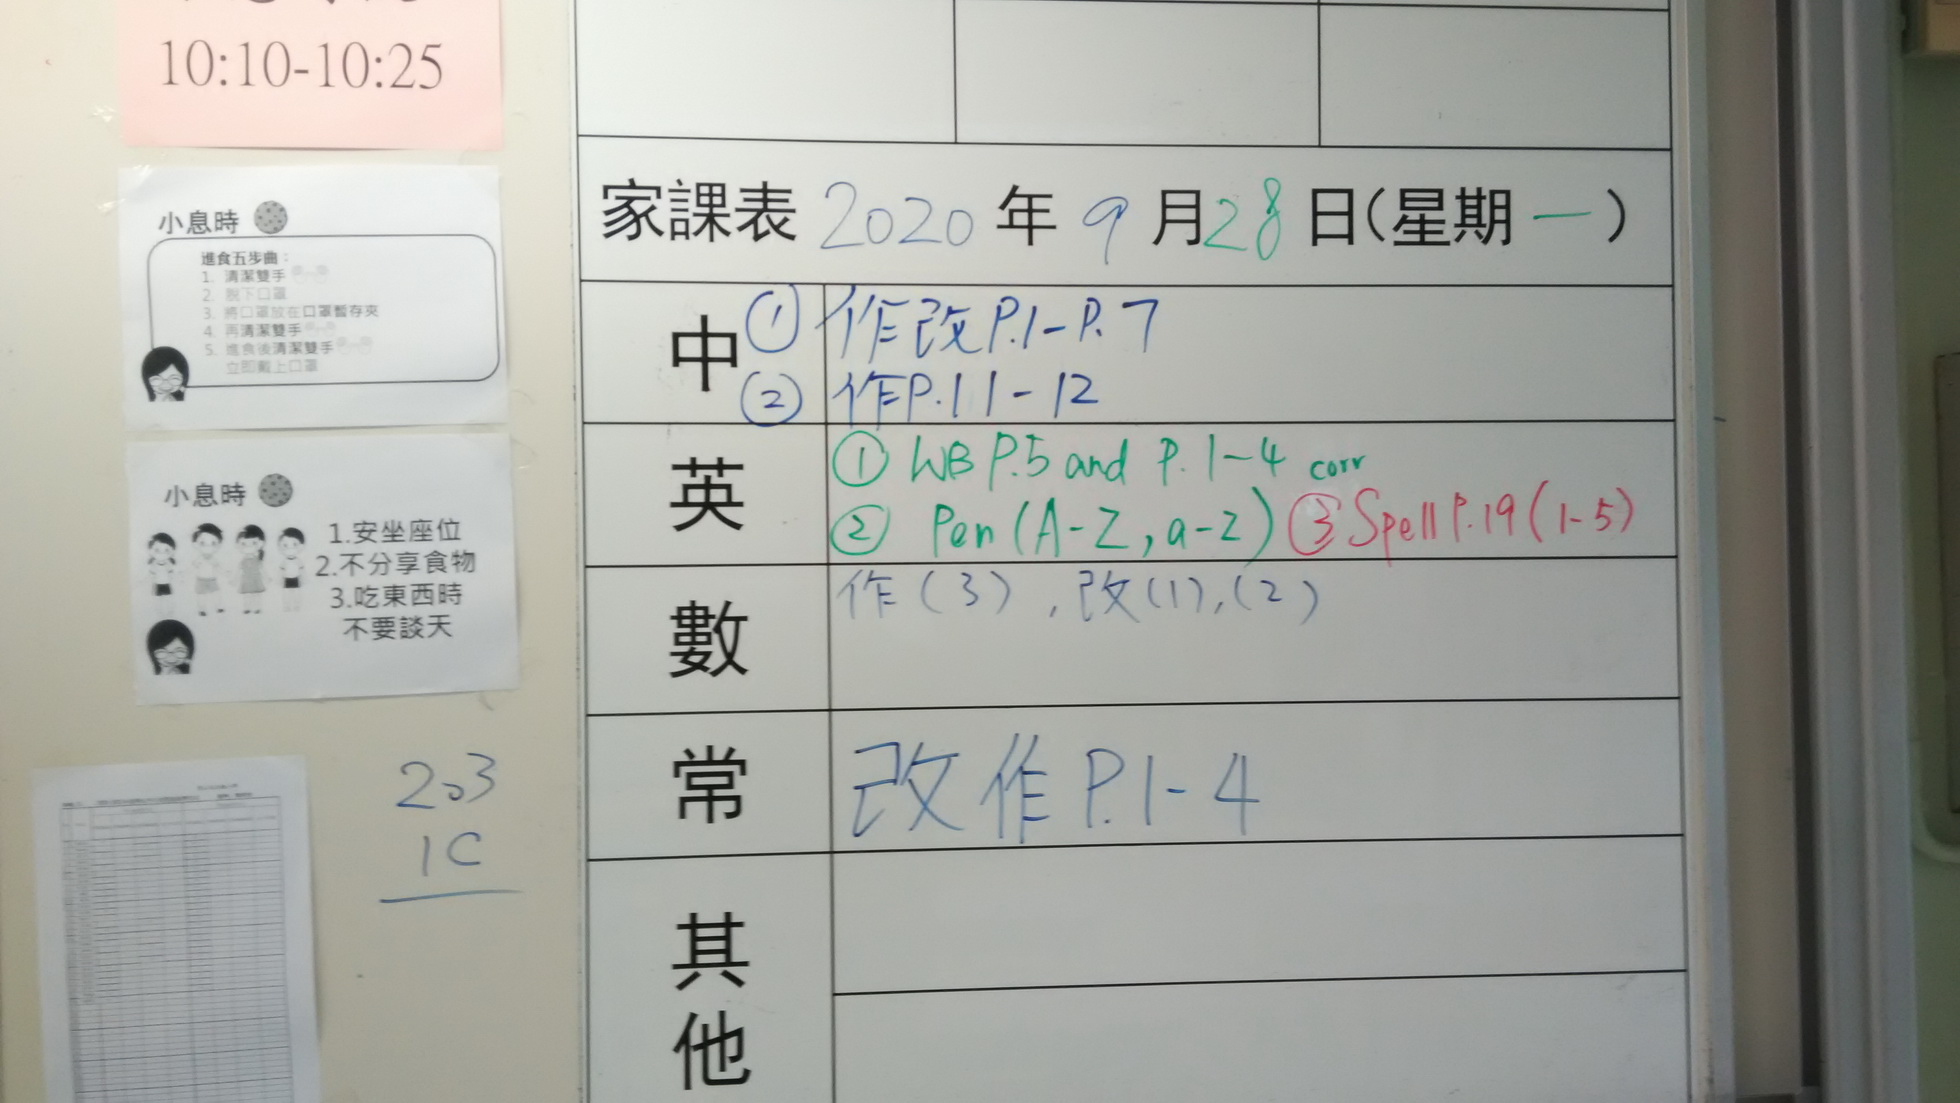 10:10-10:25
小息時
進食五步曲：
1. 清潔雙手
2. 脫下口罩
3. 將口罩放在口罩暫存夾
4. 再清潔雙手
5. 進食後清潔雙手
立即戴上口罩
小息時
1.安坐座位
2.不分享食物
3.吃東西時
不要談天
203
1C
家課表 2020 年 9 月 28 日(星期一)
中 ① 作改P.1-P.7
② 作P.11-12
英 ① WB P.5 and P.1-4 corr
② Pen (A-Z, a-z) ③ Spell P.19 (1-5)
數 作(3), 改(1),(2)
常 改作P.1-4
其他